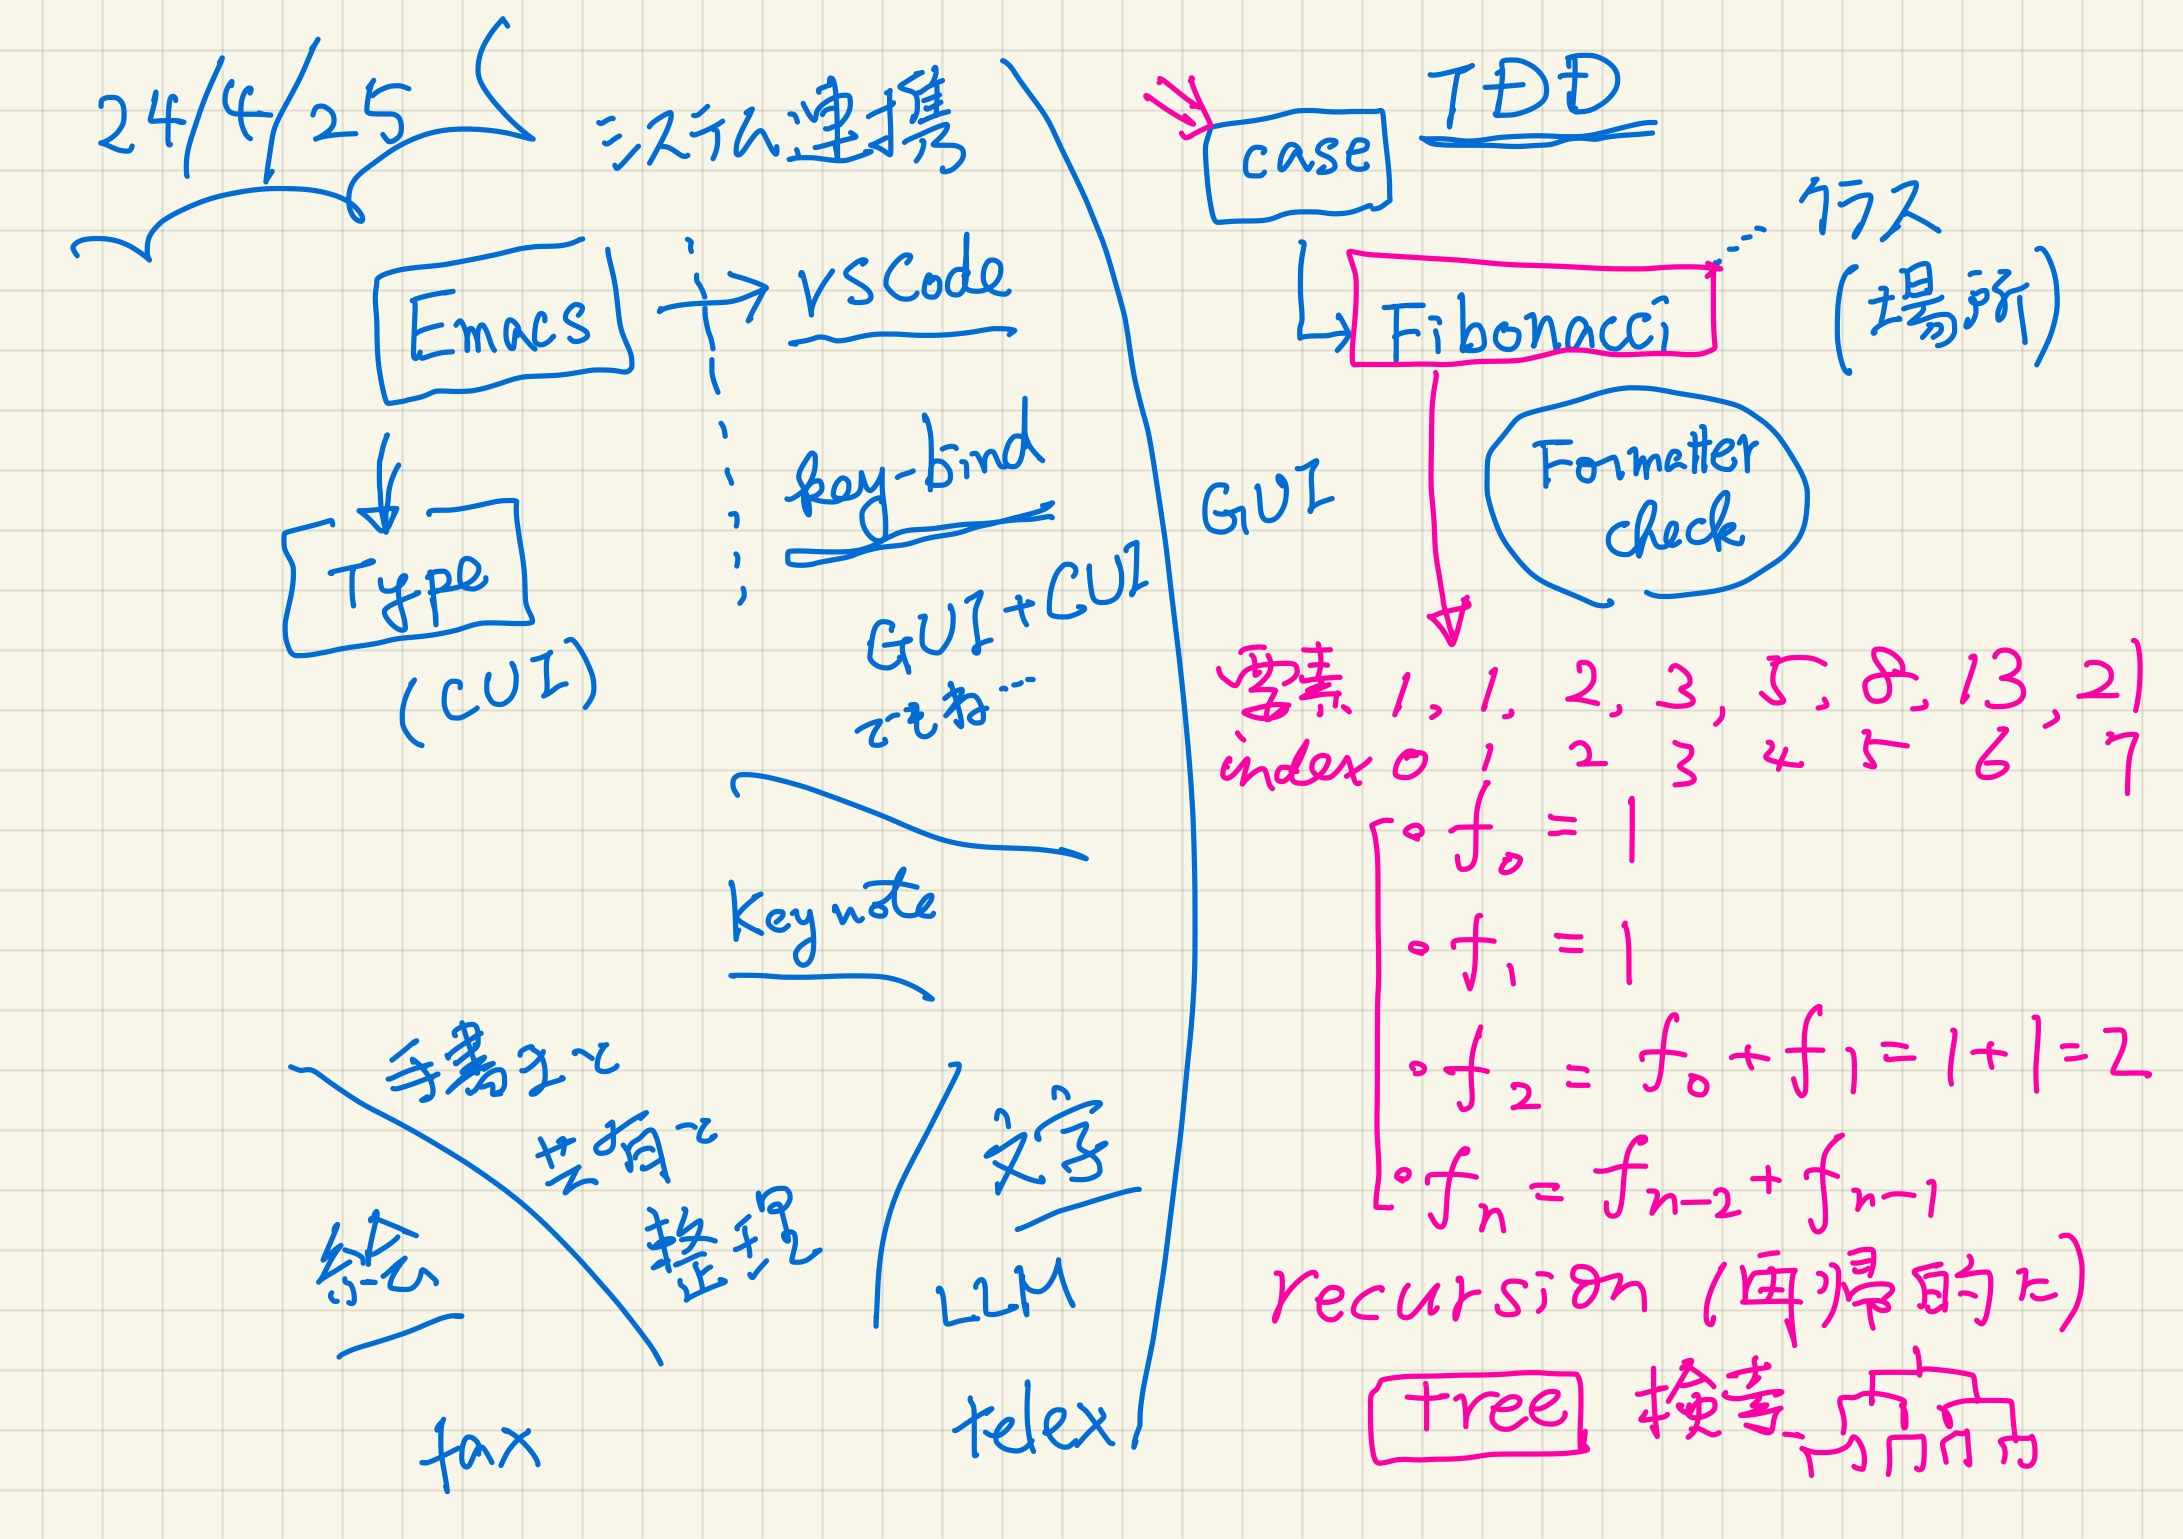 24/4/25
Emacs
→ VSCode
Type
(CUI)
key-bind
GUI+CUI
Keynote
手書きで
共有で
整理
絵
fax
文字
LLM
telex
TDD
case
Fibonacci
(場所)
GUI
Formatter
check
要素 1, 1, 2, 3, 5, 8, 13, 21
index 0 1 2 3 4 5 6 7
• f₀ = 1
• f₁ = 1
• f₂ = f₀ + f₁ = 1+1=2
• fₙ = fₙ₋₂ + fₙ₋₁
recursion (再帰的に)
tree 検索